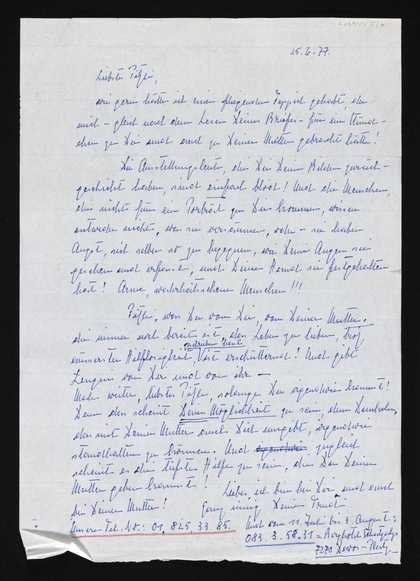 25.6.77.
Liebster Pitzi,
wie gern hätte ich einen fliegenden Teppich gehabt, der
mich – gleich nach dem Lesen Deines Briefes – für ein Stünd-
chen zu Dir und zu Deiner Mutter gebracht hätte!
Die Ausstellungsleute, die Dir Deine Bilder zurück-
geschickt haben, sind einfach blöd! Und die Menschen,
die nicht für ein Porträt zu Dir kommen, wissen
entweder nicht, was sie versäumen, oder – sie haben
Angst, sich selber so zu begegnen, wie Deine Augen sie
gesehen und erfasst, und Deine Hand sie festgehalten
hat! Arme, wahrheitsscheue Menschen!!!
was Du von Dir, von Deiner Mutter,
die immer noch bereit ist, das Leben zu lieben, trotz
äusserster Hilflosigkeit, ist erschütternd! Und gibt
Zeugnis von Dir und von ihr –
Mach weiter, liebster solange Du irgendwie kannst!
Denn das scheint Deine Möglichkeit zu sein, das Dunkle,
das mit Deiner Mutter auch Dich umgibt, irgendwie
standhalten zu können. Und zugleich
scheint es die tiefste Hilfe zu sein, die Du Deiner
Mutter geben kannst! Lieber, ich bin bei Dir und auch
bei Deiner Mutter! Ganz innig Deine
Unsere Tel. Nr.: 01, 825 33 85. Und vom 11. Juli bis 3. August:
083. 3.58.31 =
7270 Davos-